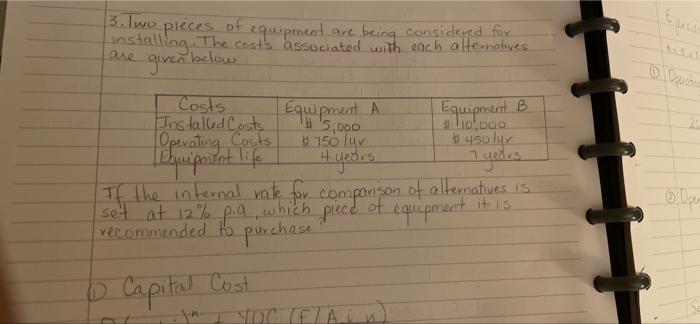 3. Two pieces of equipment are being considered for
installing. The costs associated with each alternatives
are given below
Costs Equipment A Equipment B
Installed Costs $ 5,000 $ 10,000
Operating Costs $ 750/yr $ 450/yr
Equipment life 4 years 7 years
If the internal rate for comparison of alternatives is
set at 12% p.a., which piece of equipment it is
recommended to purchase?
① Capital Cost
① Operating